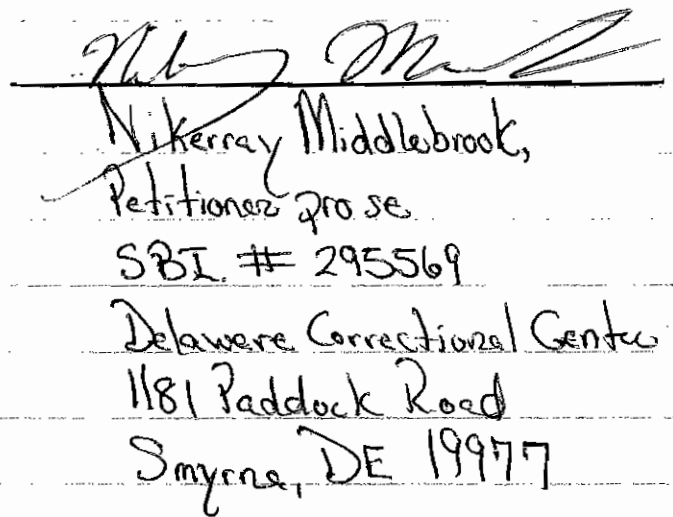 Nikerray Middlebrook,
Petitioner pro se
SBI # 295569
Delaware Correctional Center
1181 Paddock Road
Smyrna, DE 19977